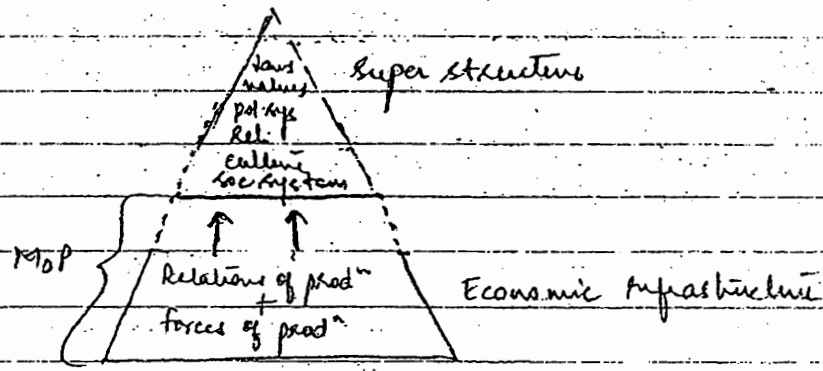 Laws
values
pol. sys
Reli.
culture
soc systems
Super structure
MOP
Relations of prodn
+
forces of prodn
Economic Infrastructure